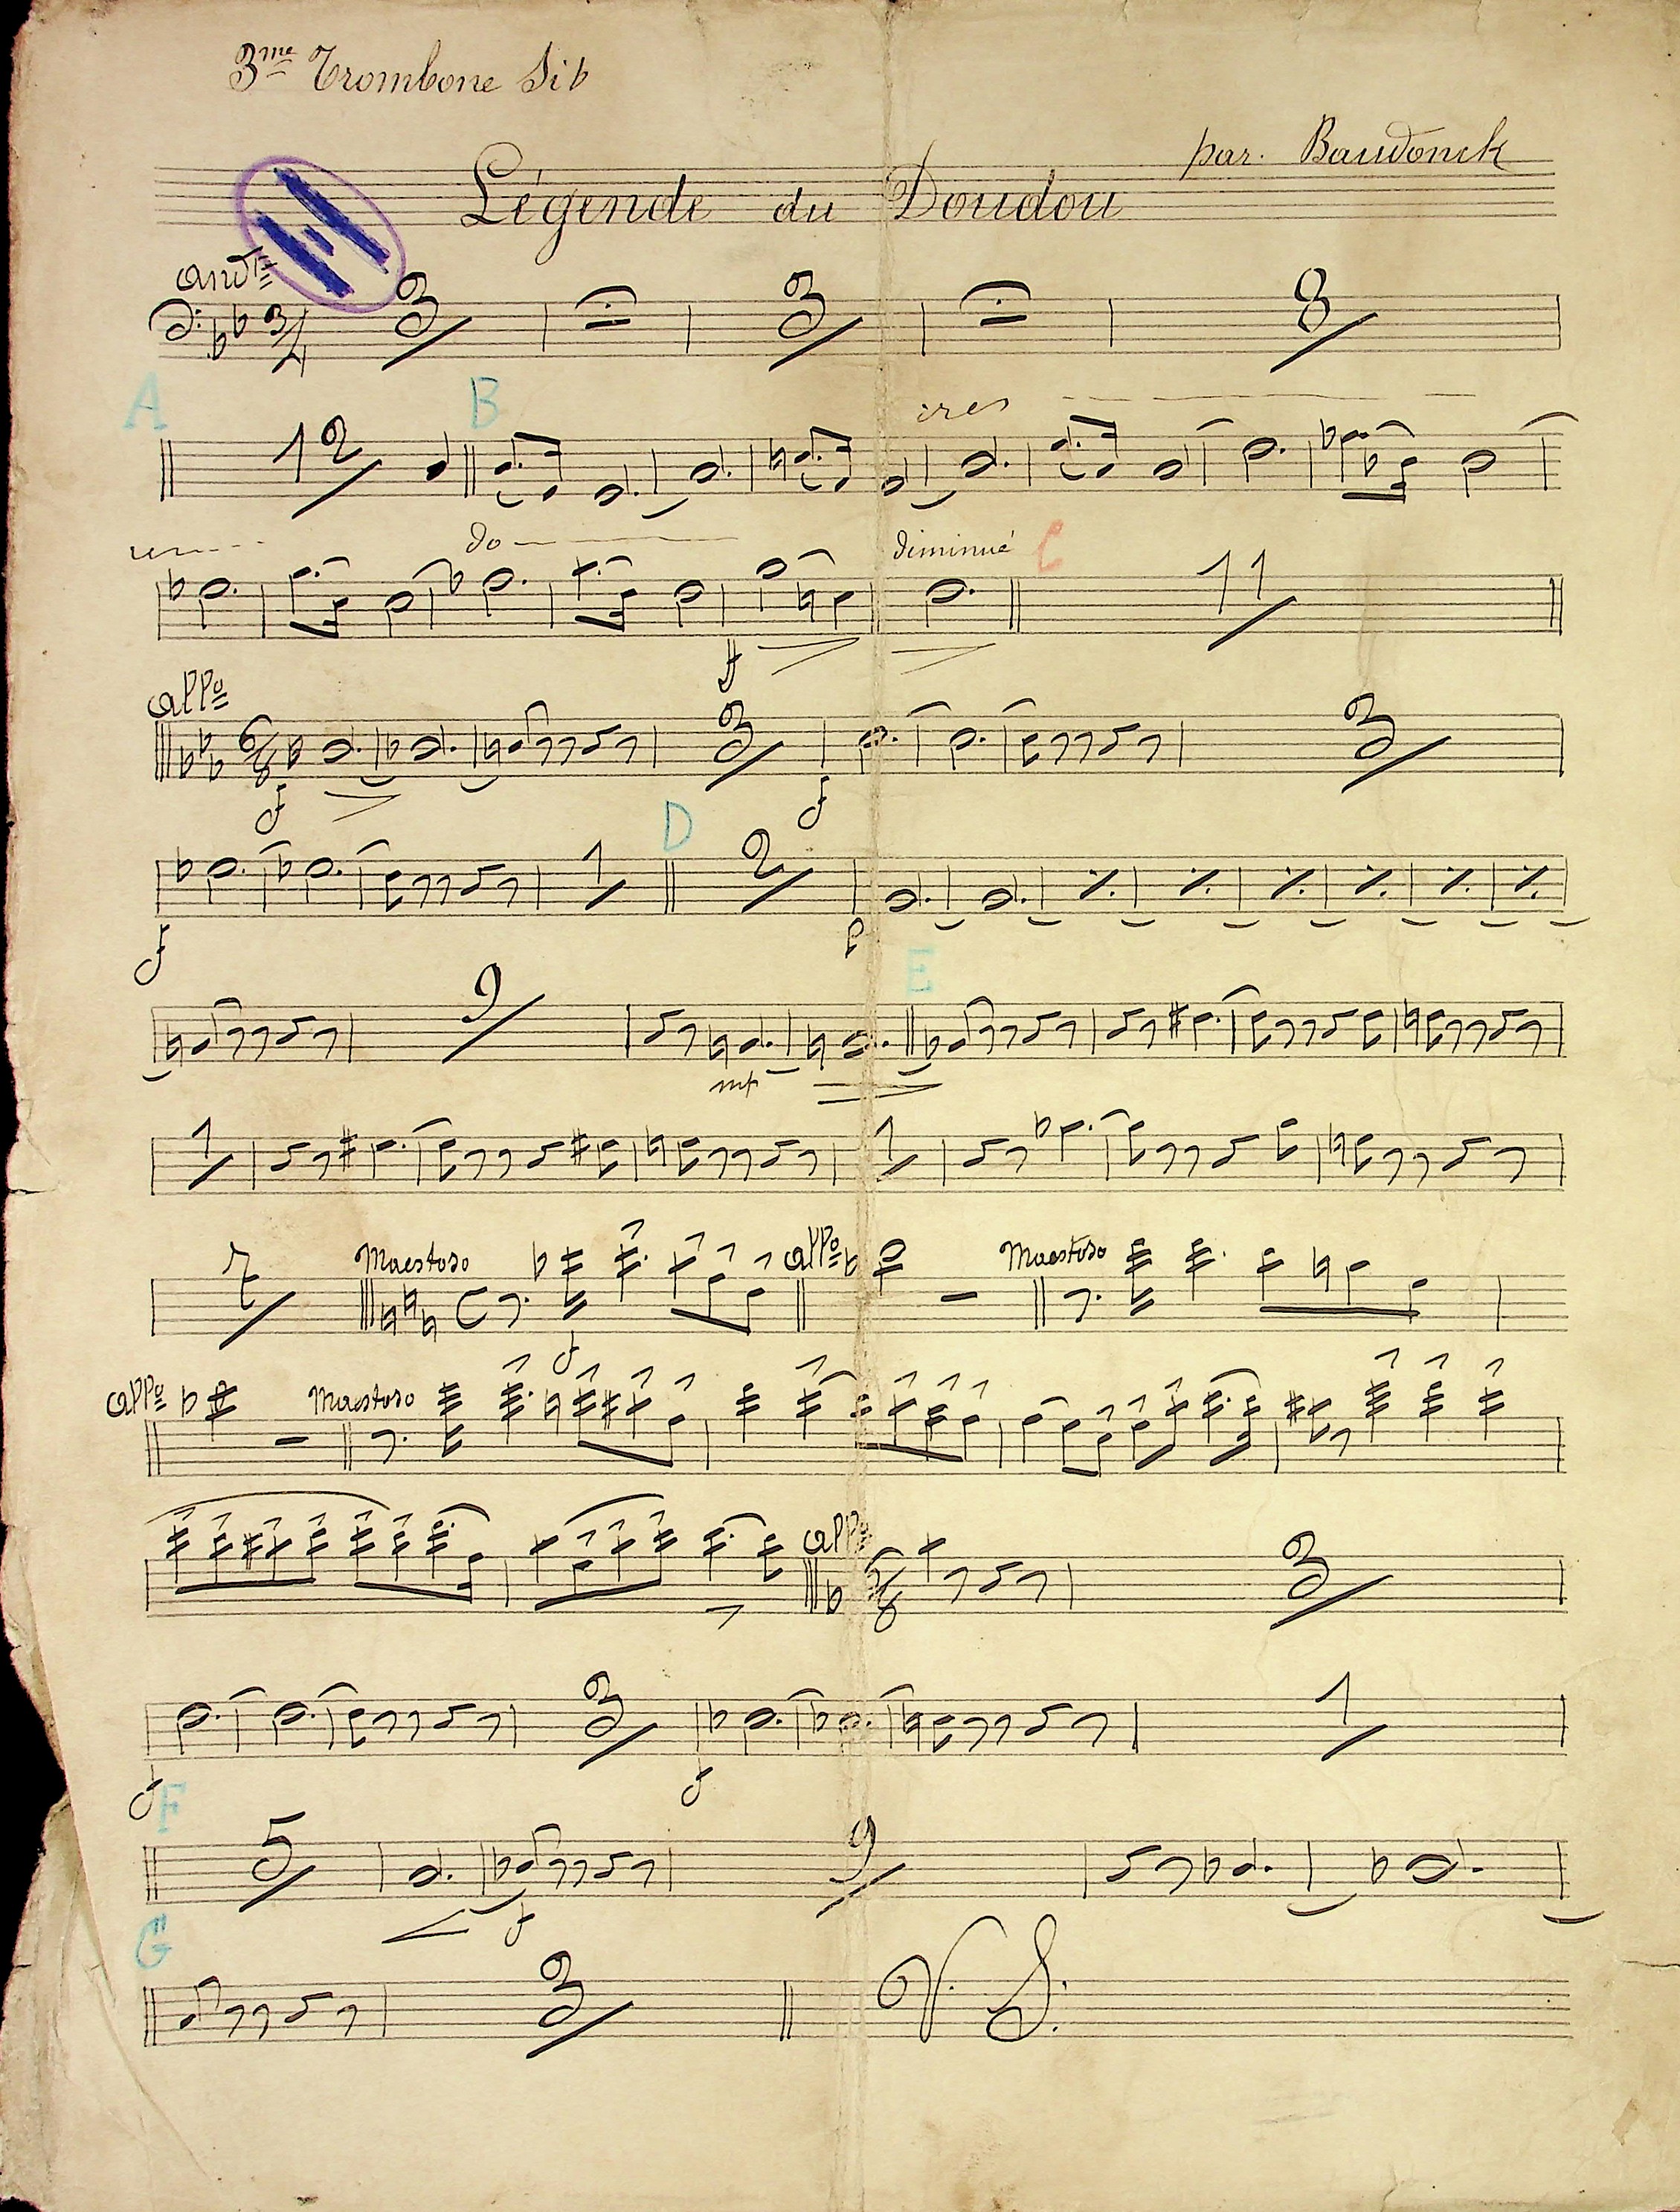 3me Trombone Sib
par. Baudonck
Légende du Doudou
Andte
3/4 3 3 8
A B cres
12
cen do diminué C
ff 11
Allo
6/8 3 3
f f
D
1 2
f p
E
9
mp
1 1
7 Maestoso C Allo Maestoso
f
Allo Maestoso
Allo
6/8 3
3 1
f f
F
5 9
f
G
3 V. S.